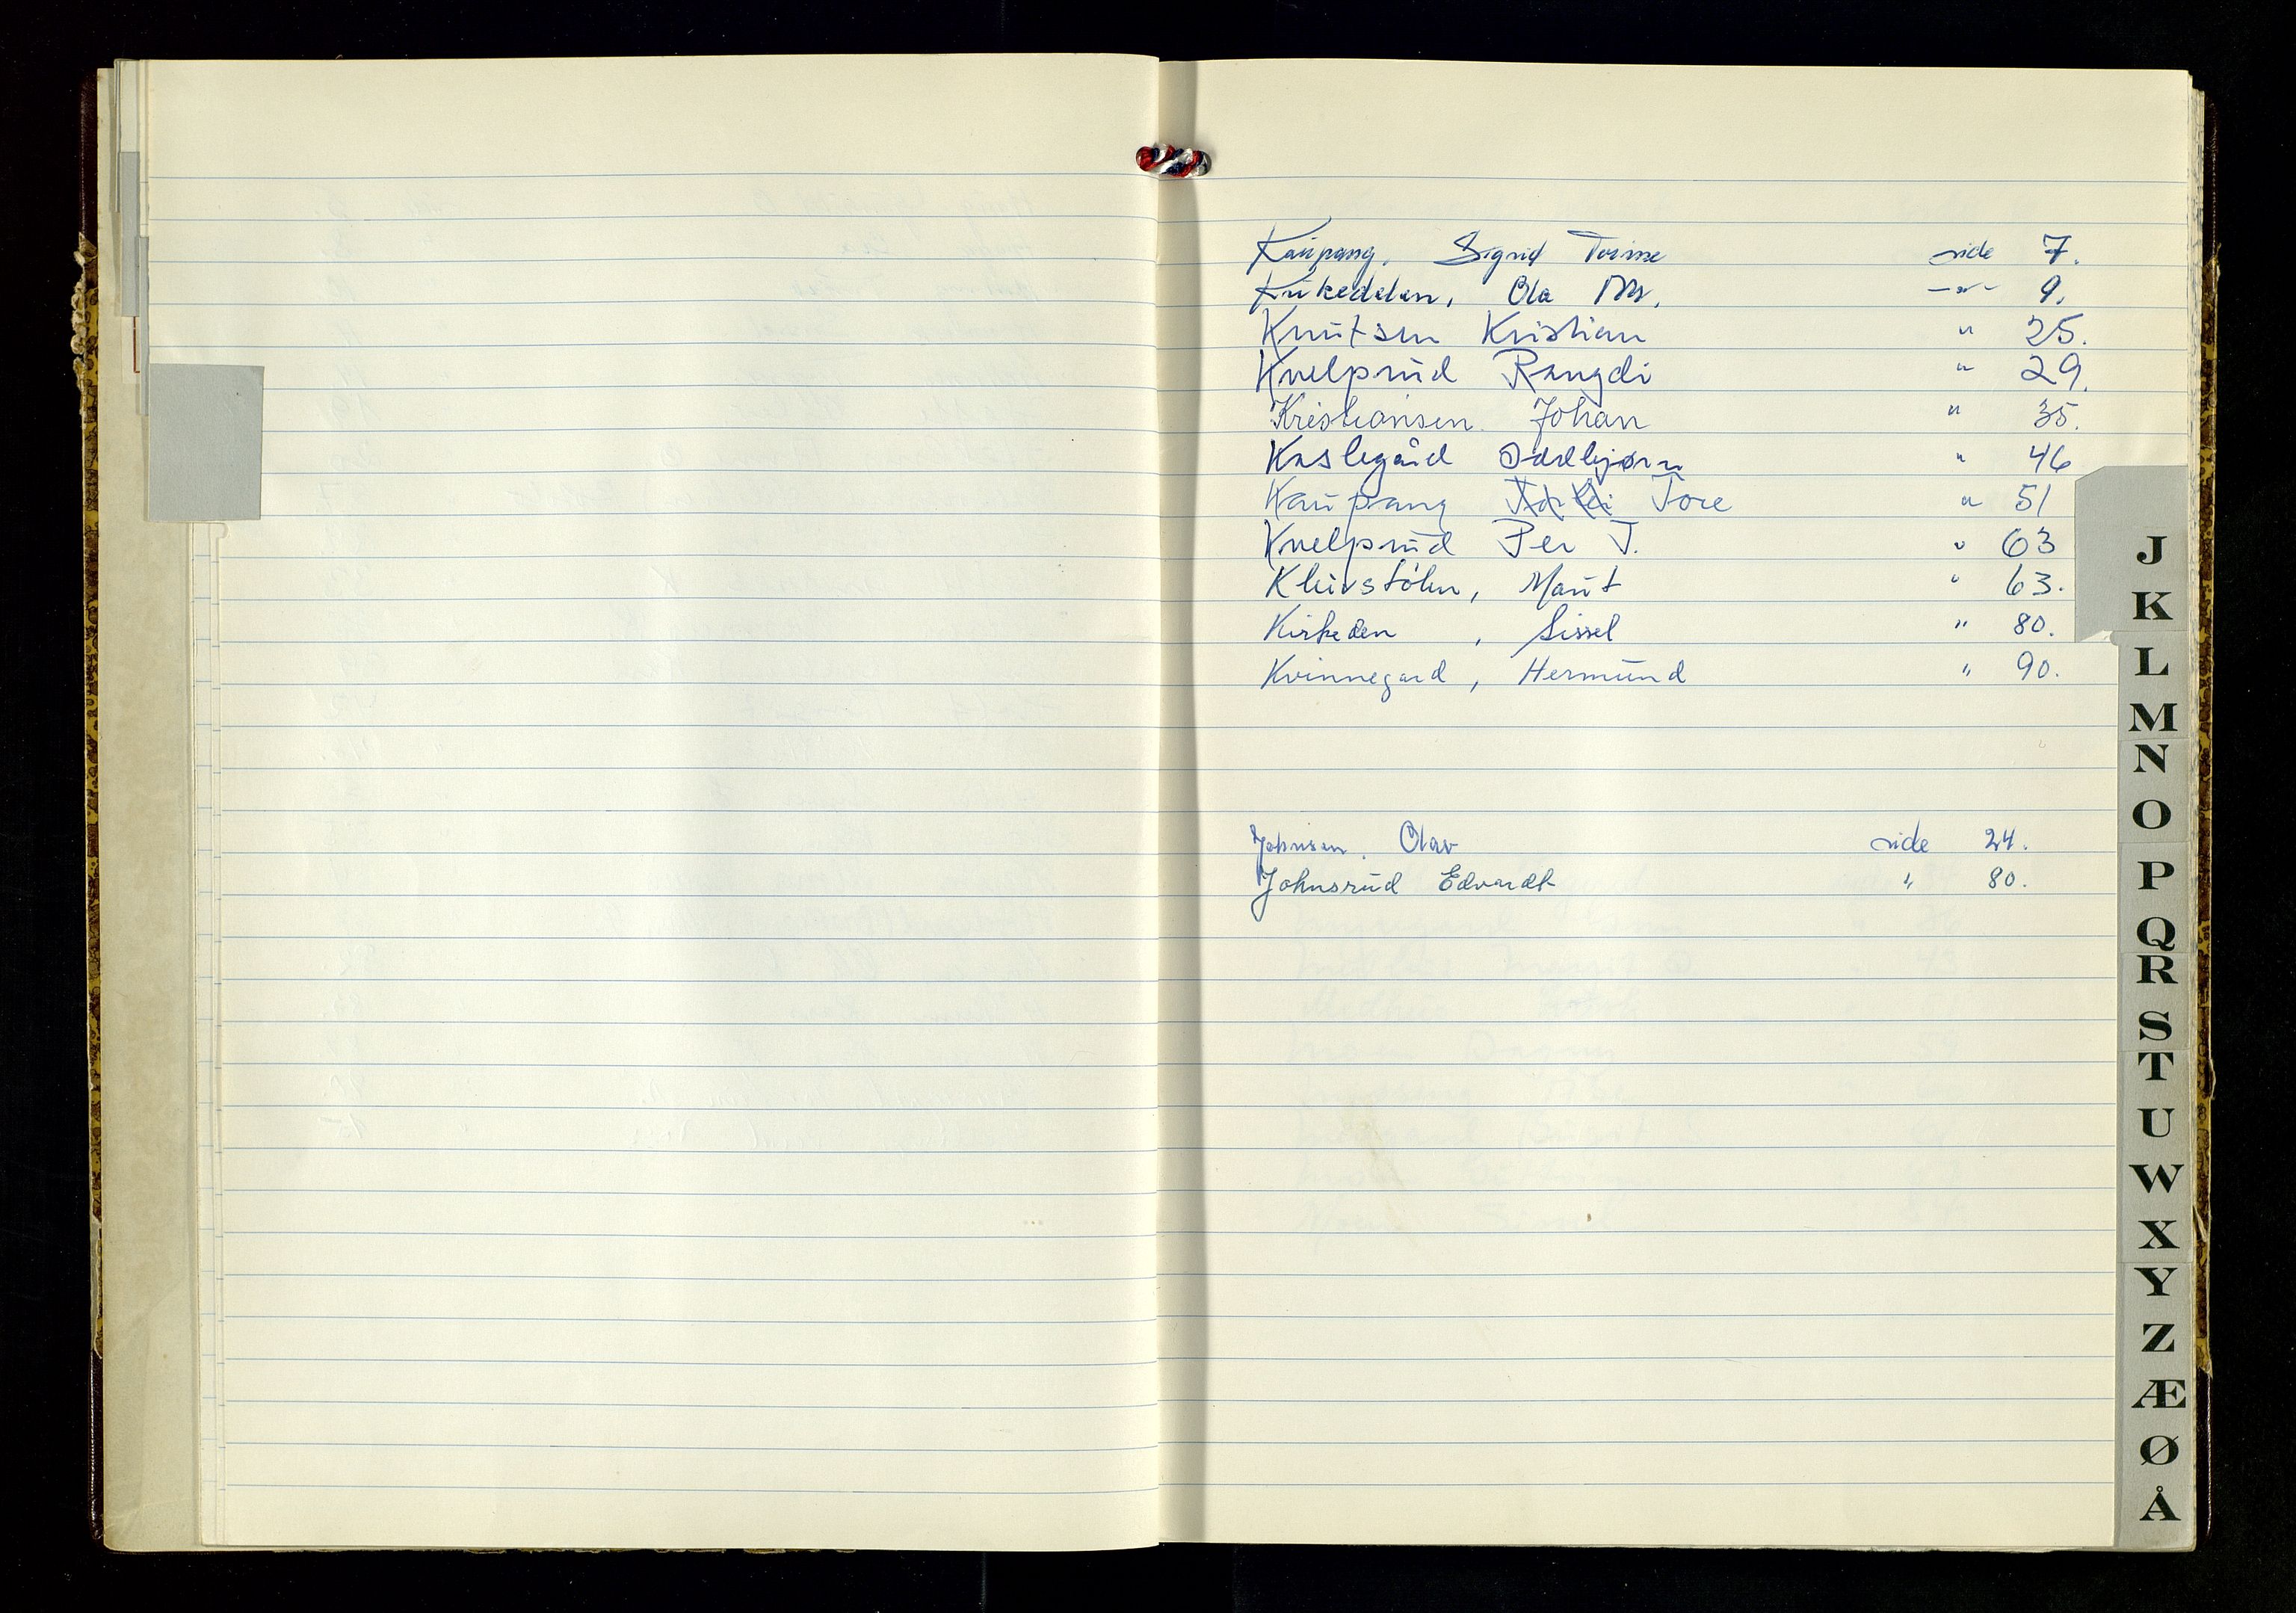 Kaupang, Sigrid Torine side 7.
Kirkedelen, Ola M. —"— 9.
Knutsen Kristian " 25.
Kvelprud Rangdi " 29.
Kristiansen. Johan " 35.
Kaslegård Oddbjørn " 46
Kaupang Tore " 51
Kvelprud Per T. " 63
Kleivstølen, Marit " 63.
Kirkeden, Sissel " 80.
Kvinnegard, Hermund " 90.
Johnsen. Olav side 24.
Johnsrud Edvardt " 80.
J
K
L
M
N
O
P
Q
R
S
T
U
W
X
Y
Z
Æ
Ø
Å